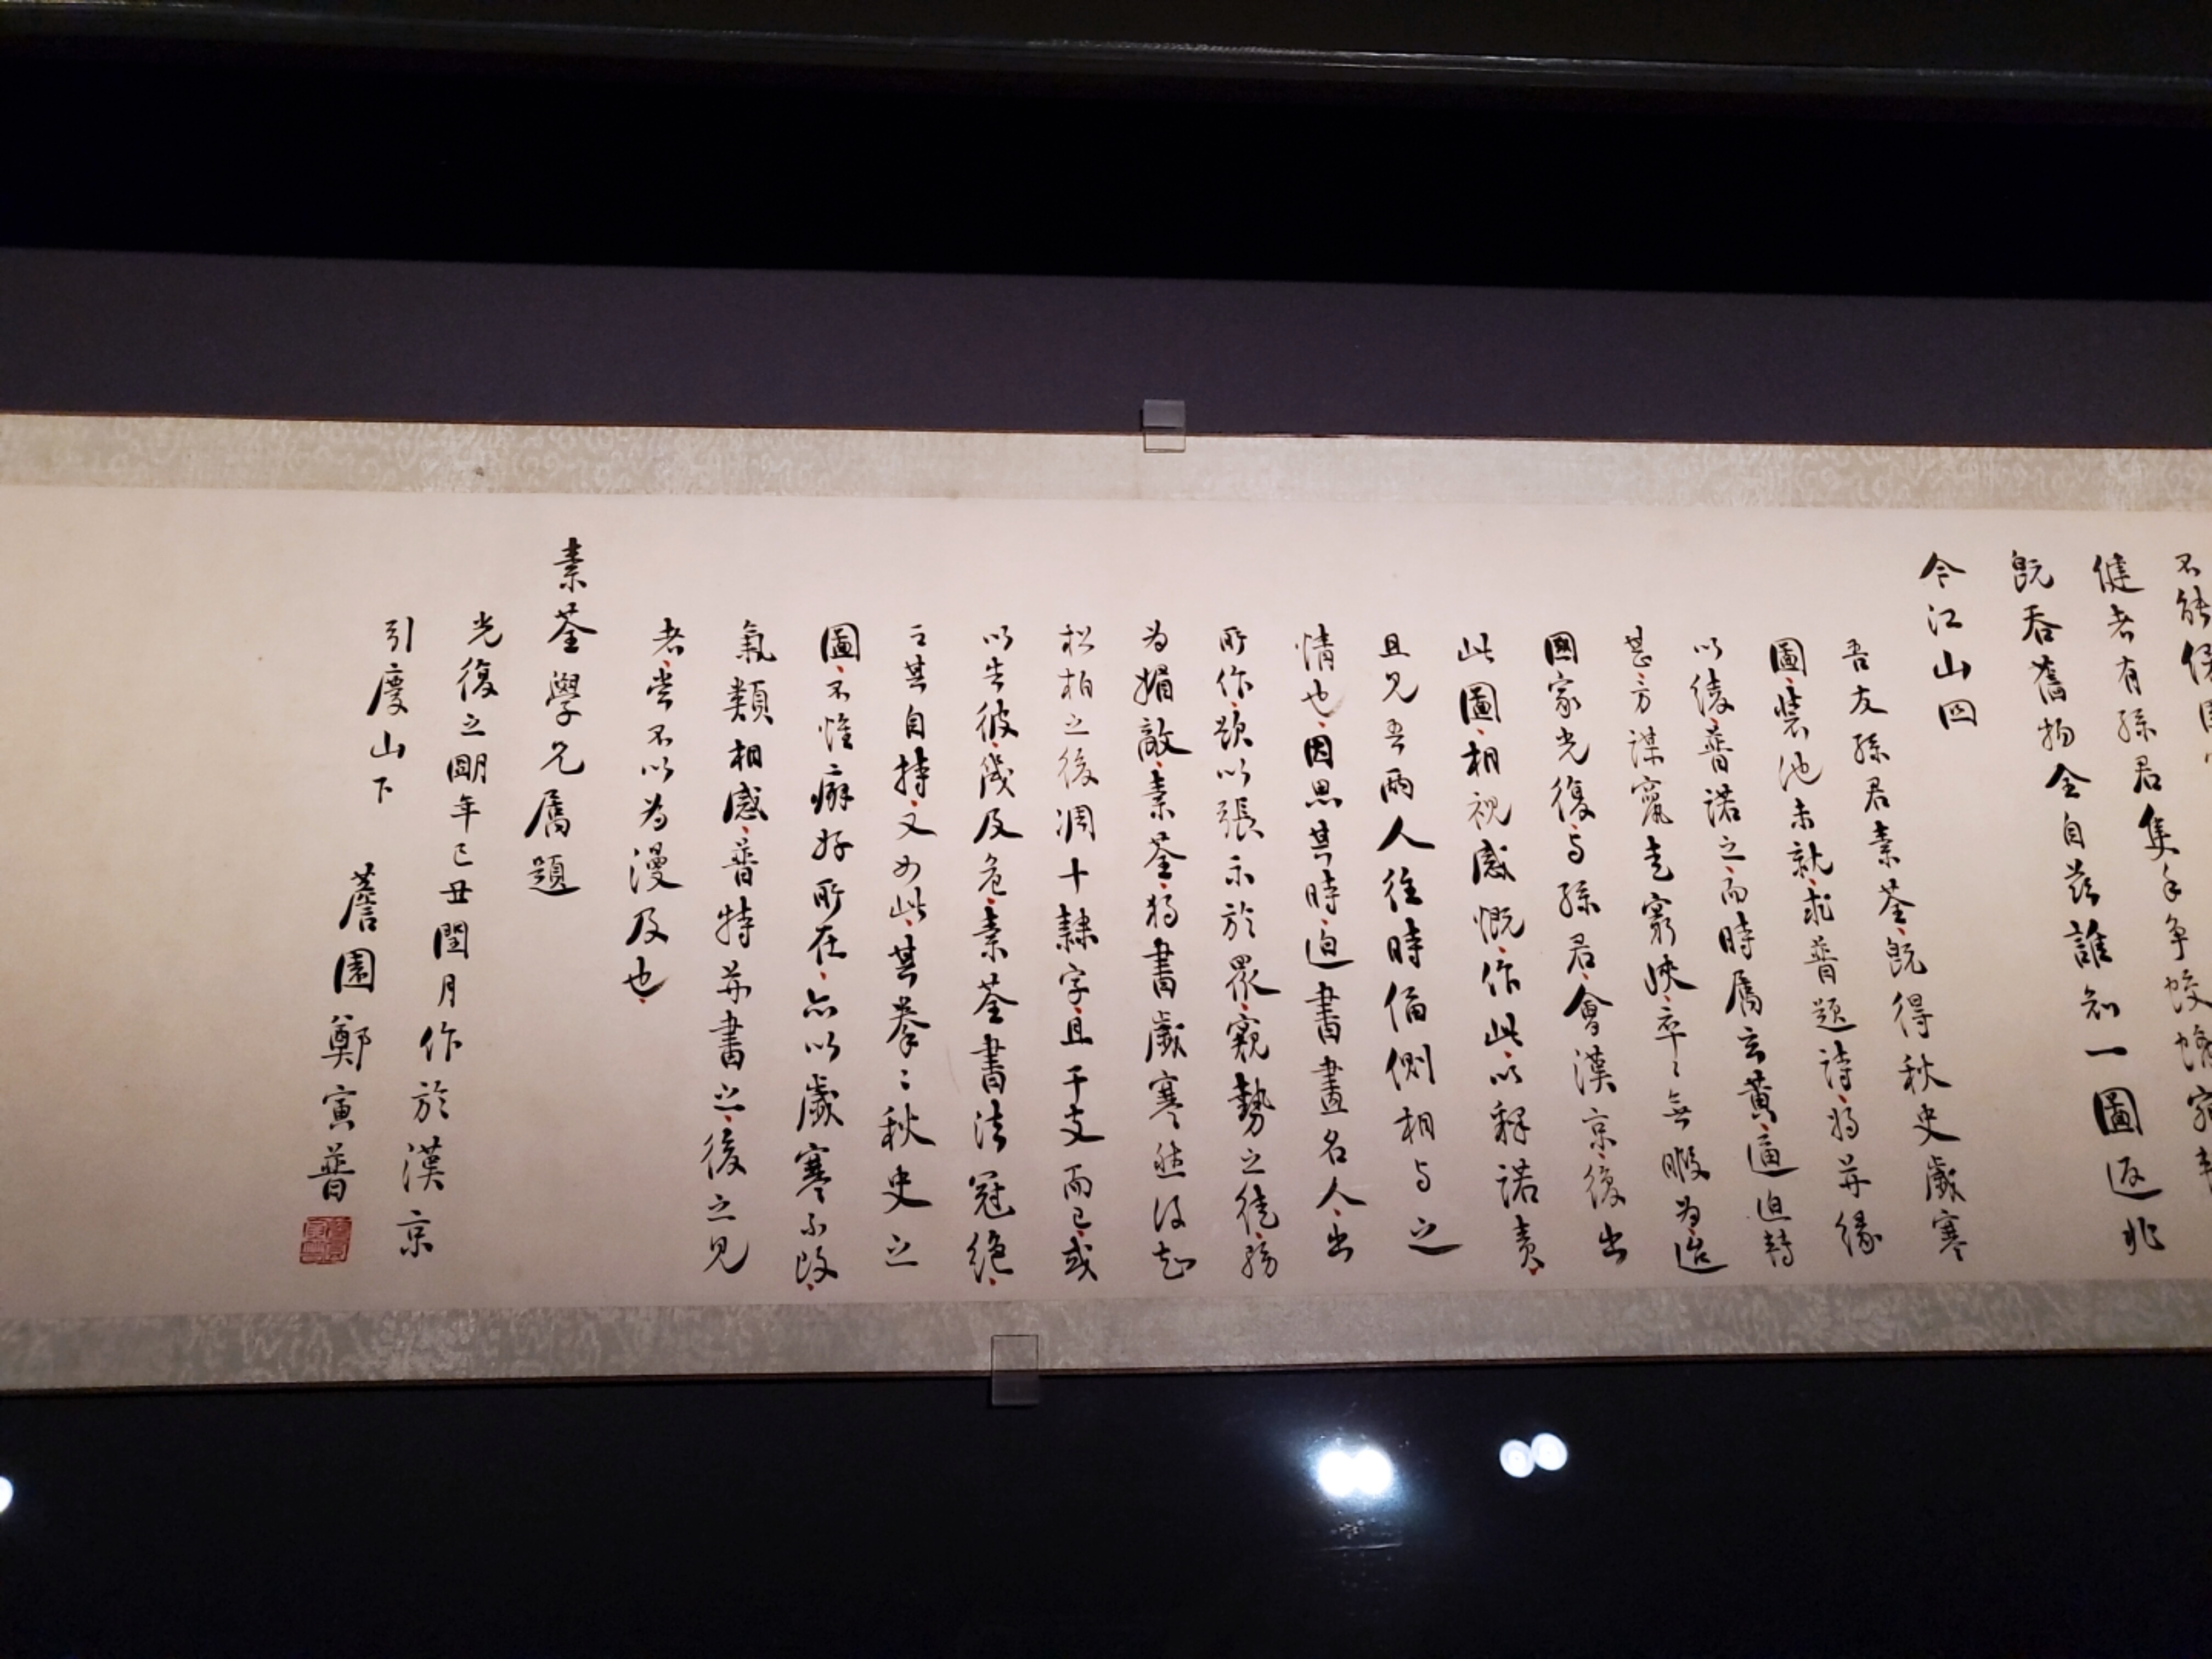 不能保
健者有孫君隻手爭蛟
既吞舊物全自茲誰知一圖返兆
今江山回
吾友孫君素荃既得秋史歲寒
圖裝池未就求普題詩將并緣
以後普諾之而時屬玄黃逼迫轉
甚方謀竄走窮峽卒卒無暇為迨
國家光復与孫君會漢京復出
此圖相視感慨作此以釋諾責
且見吾兩人往時偪側相与之
情也因思其時迫書畫名人出
所作欲以張示於眾窺勢之徒務
為媚敵素荃獨書歲寒然後知
松柏之後凋十隸字且干支而已或
以告彼幾及危素荃書法冠絕
而其自持又如此其拳拳秋史之
圖不惟癖好所在亦以歲寒不改
氣類相感普特并書之後之見
者當不以為漫及也
素荃學兄屬題
光復之五年己丑閏月作於漢京
引慶山下 薝園鄭寅普